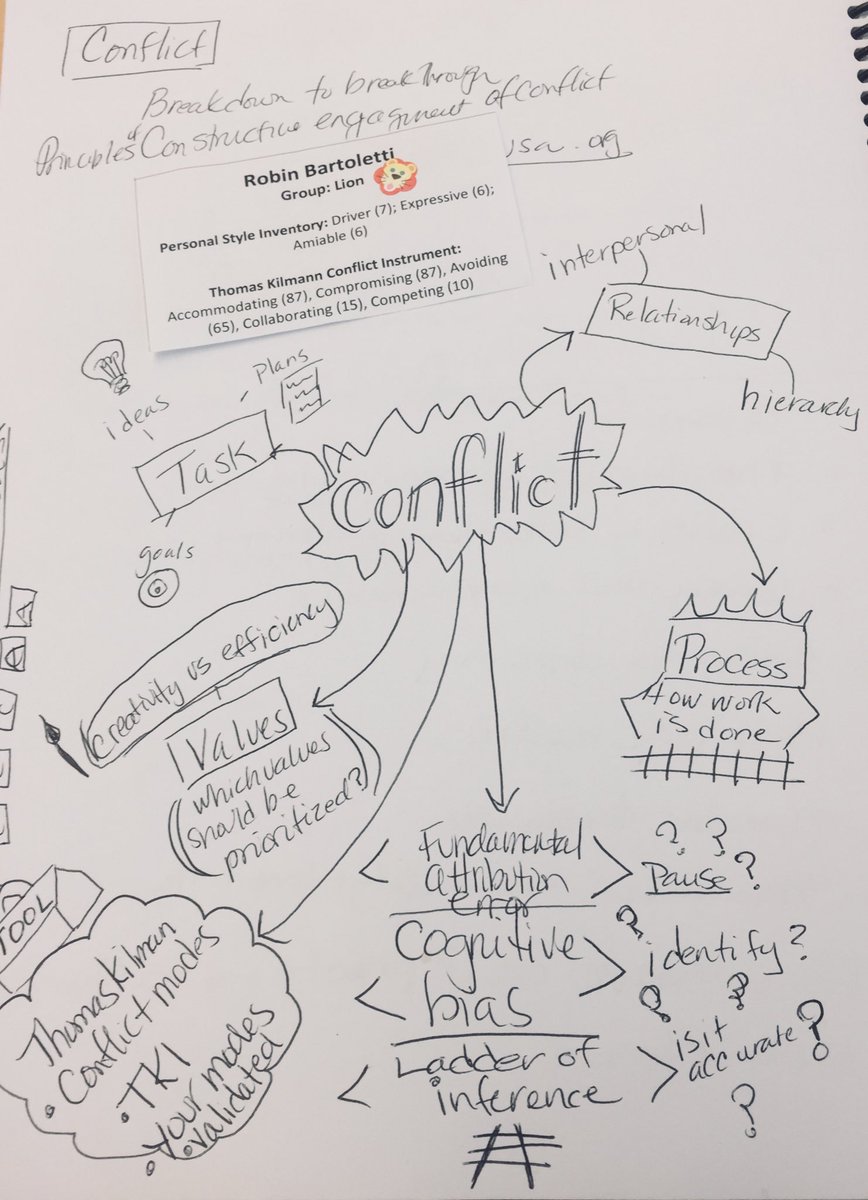 Conflict
Breakdown to breakthrough
Principles of Constructive engagement of conflict
usa.org
Robin Bartoletti
Group: Lion
Personal Style Inventory: Driver (7); Expressive (6);
Amiable (6)
Thomas Kilmann Conflict Instrument:
Accommodating (87), Compromising (87), Avoiding
(65), Collaborating (15), Competing (10)
interpersonal
Relationships
hierarchy
ideas
Plans
Task
goals
Conflict
creativity vs efficiency
Values
which values
should be
prioritized?
Process
How work
is done
Fundamental
attribution
error
? ?
Pause?
Cognitive
bias
?
identify?
? ?
Ladder of
inference
is it
accurate?
?
TOOL
Thomas Kilman
• Conflict modes
• TKI
• your modes
• validated
A
A
C